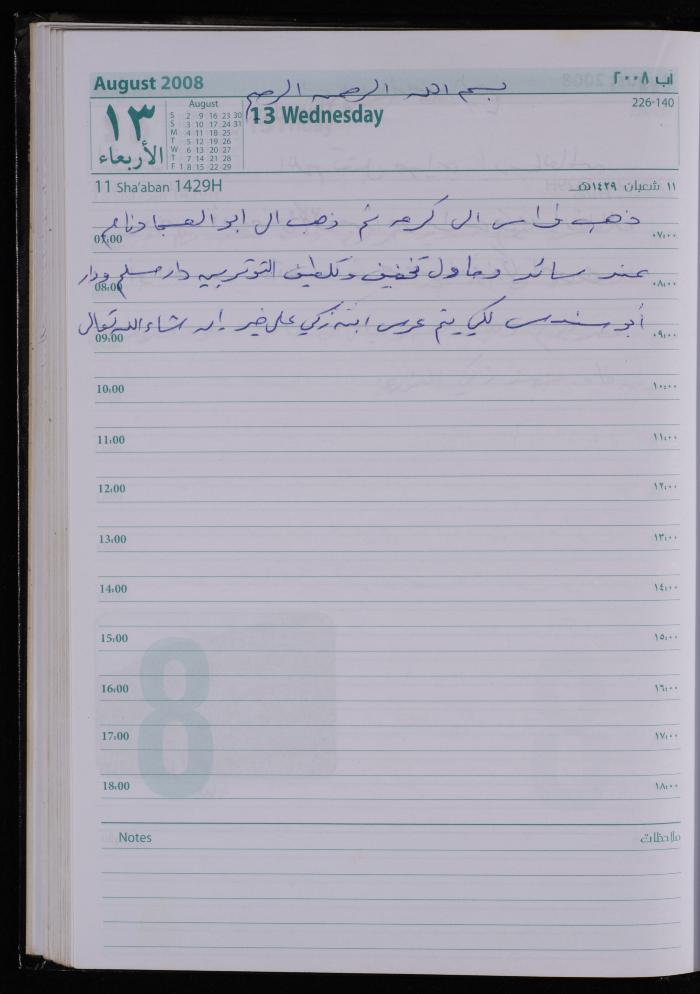 August 2008
اب ٢٠٠٨
بسم الله الرحمن الرحيم
١٣
الأربعاء
August
S 2 9 16 23 30
S 3 10 17 24 31
M 4 11 18 25
T 5 12 19 26
W 6 13 20 27
T 7 14 21 28
F 1 8 15 22 29
13 Wednesday
226-140
11 Sha'aban 1429H
١١ شعبان ١٤٢٩هـ
ذهب الى ثم ذهب ال ابو
07:00 ٠٧:٠٠
عند سائد وحاول تخفيف وتلطيف التوتر بين دار مسلم ودار
08:00 ٠٨:٠٠
أبو سندس لكي يتم عرس ابنه زكي على خير إن شاء الله تعالى
09:00 ٠٩:٠٠
10:00 ١٠:٠٠
11:00 ١١:٠٠
12:00 ١٢:٠٠
13:00 ١٣:٠٠
14:00 ١٤:٠٠
15:00 ١٥:٠٠
16:00 ١٦:٠٠
17:00 ١٧:٠٠
18:00 ١٨:٠٠
8
Notes ملاحظات